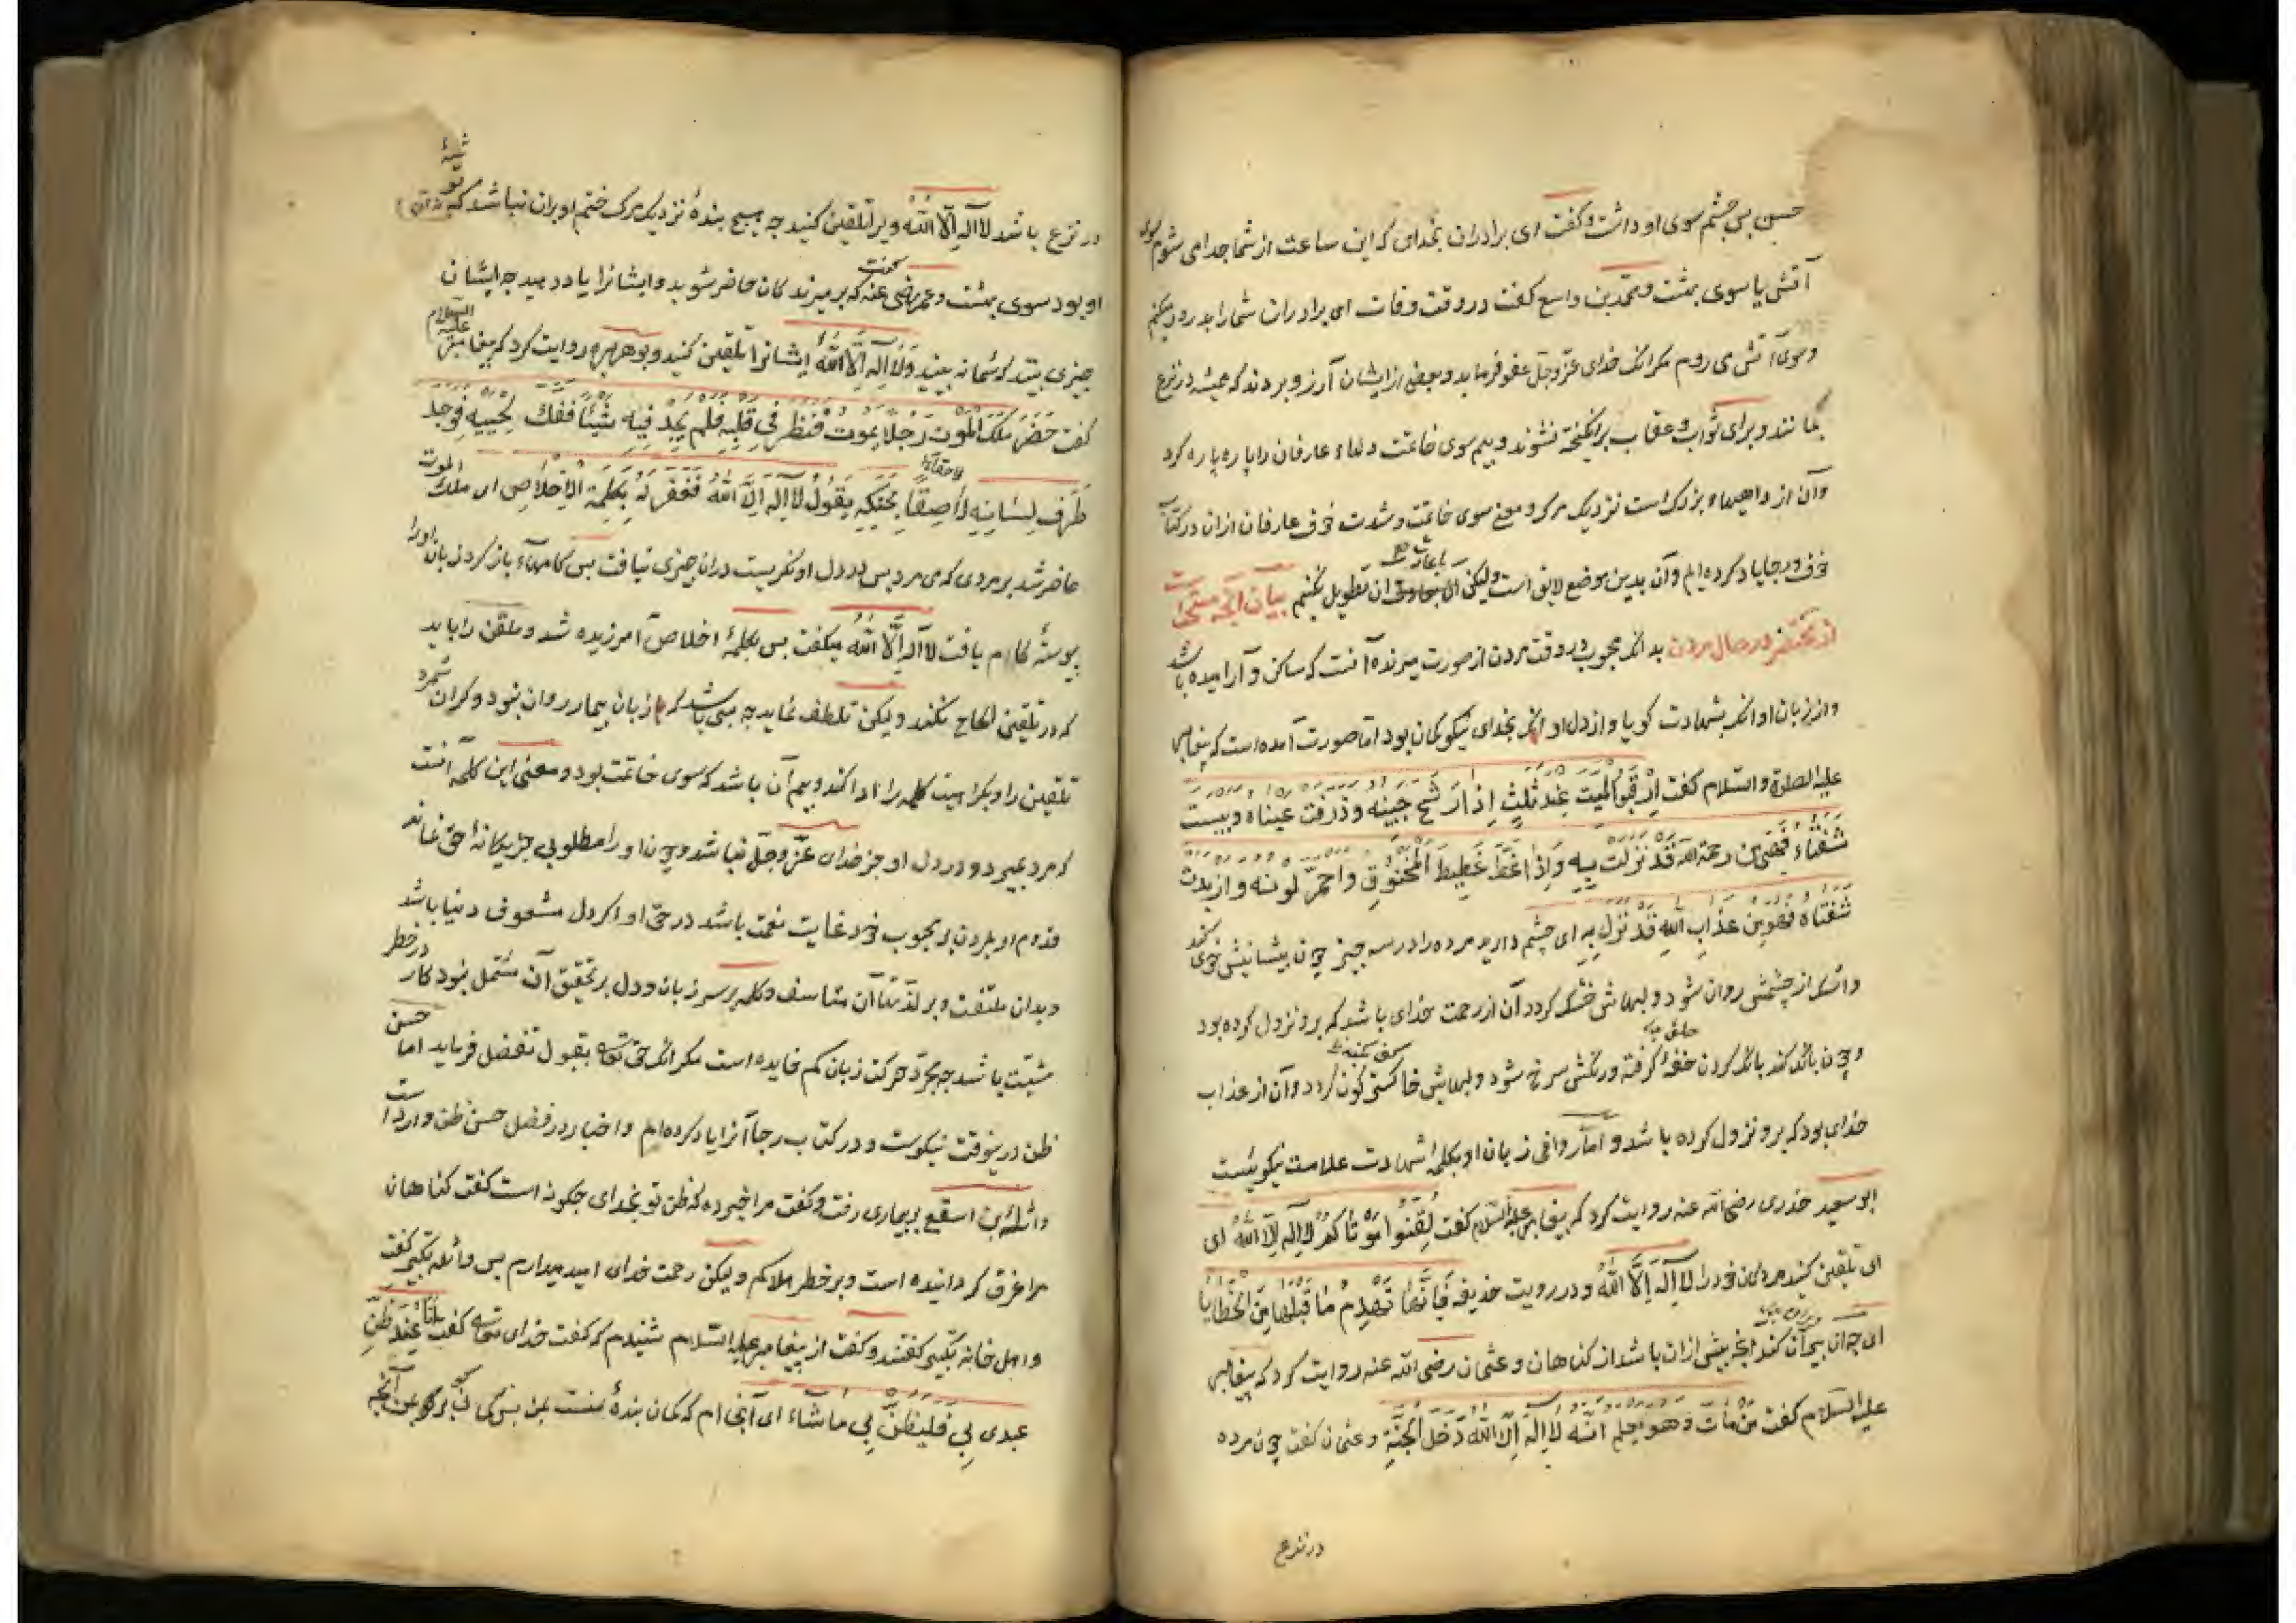 حسن پس چشم سوی او داشت و کفت ای برادران بخدای که این ساعت از شما جدا می شوم سوی
آتش یا سوی بهشت و محمد بن واسع کفت در وقت وفات ای برادران شما را بدرود میکنم
و سوی آتش می روم مکر انک خدای عز وجل عفو فرماید و بعضی از ایشان آرزو بردند که همیشه در نزع
بمانند و برای ثواب و عقاب برانکیخته نشوند و بیم سوی خاتمت دلهاء عارفان را پاره پاره کرد
و آن از داهیهاء بزرک است نزدیک مرک و معنی سوی خاتمت و شدت خوف عارفان ازان در کتاب
خوف و رجا یاد کرده ایم و آن بدین موضع لایق است ولیکن باعادت ان تطویل نکنیم بیان آنچه مستحب است
از محتضر در حال مردن بدانکه محبوب در وقت مردن از صورت میرنده آنست که ساکن و آرامیده باشد
و از زبان او انکه بشهادت کویا و از دل او انکه بخدای نیکو کمان بود اما صورت آمده است که پیغامبر
علیه الصلوة والسلام کفت اِرْقُبُوا المیت عِنْدَ ثَلٰثٍ اِذا رَشَحَ جَبینه وذرفت عیناه ویبست
شفتاه فهی من رحمة الله قد نزلت به واذا غَطَّ غَطِیطَ المخنوق واحمرّ لونه واربدت
شفتاه فهو من عذاب الله قد نزل به ای چشم دارید مرده را در سه چیز چون پیشانیش خوی کند
و اشک از چشمش روان شود و لبهایش خشک کردد آن از رحمت خدای باشد که برو نزول کرده بود
و چون بانک کند بانک کردن خفه کرفته و رنکش سرخ شود و لبهایش خاکستر کون کردد و آن از عذاب
خدای بود که برو نزول کرده باشد و اما روانی زبان او بکلمۀ شهادت علامت نیکویست
ابو سعید خدری رضی الله عنه روایت کرد که پیغامبر علیه السلام کفت لقنوا موتاکم لا اله الا الله ای
ای تلقین کنید مردکان خود را لا اله الا الله و در رویت حذیفه فانها تهدم ما قبلها من الخطایا
ای چه آن ویران کند انچه پیش ازان باشد از کناهان و عثمان رضی الله عنه روایت کرد که پیغامبر
علیه السلام کفت من مات وهو یعلم انه لا اله الا الله دخل الجنة و عثمان کفت چون مرده
در نزع
در نزع باشد لا اله الا الله ویرا تلقین کنید چه هیچ بندۀ نزدیک مرک ختم او بران نباشد که توشۀ
او بود سوی بهشت و عمر رضی عنه کفت که بر میرندکان حاضر شوید و ایشانرا یاد دهید چه ایشان
چیزی بینند که شما نه بینید و لا اله الا الله ایشانرا تلقین کنید و بو هریره روایت کرد که پیغامبر علیه السلام
کفت حَضَرَ ملک الموت رجلا یموت فنظر فی قلبه فلم یجد فیه شیئا ففک لحییه فوجد
طرف لسانه لاصقا بحنکه یقول لا اله الا الله فغفر له بکلمة الاخلاص ای ملک الموت
حاضر شد بر مردی که می مرد پس در دل او نکریست دران چیزی نیافت پس کامهاء باز کرد زبان او را
پیوستۀ کام یافت لا اله الا الله میکفت پس بکلمۀ اخلاص آمرزیده شد و ملقن را باید
که در تلقین الحاح نکند ولیکن تلطف نماید چه می باشد که زبان بیمار روان نبود و کران شمرد
تلقین را و بکراهیت کلمه را ادا کند و بیم آن باشد که سوی خاتمت بود و معنی این کلمه آنست
که مرد بمیرد و در دل او جز خدای عز وجل نباشد و چون او را مطلوبی جز یکانۀ حق نماند
قدوم او بمردن بر محبوب خود غایت نعمت باشد در حق او اکر دل مشعوف دنیا باشد
و بدان ملتفت و بر لذتهاآن متاسف و کلمه بر سر زبان و دل بر تحقیق آن مشتمل نبود کار در خطر
مشیت باشد چه مجرد حرکت زبان کم فایده است مکر انکه حق تعالی بقبول تفضل فرماید اما حسن
ظن درینوقت نیکوست و در کتاب رجا آنرا یاد کرده ام و اخبار در فضل حسن ظن وارد است
واثلة بن اسقع بر بیماری رفت و کفت مرا خبر ده که ظن تو بخدای چکونه است کفت کناهان
مرا غرق کرد انیده است و بر خطر هلاکم ولیکن رحمت خدای امید میدارم پس واثله تکبیر کفت
و اهل خانه تکبیر کفتند و کفت از پیغامبر علیه السلام شنیدم که کفت خدای تعالی کفت انا عند ظن
عبدی بی فلیظن بی ما شاء ای آنجا ام که کمان بندۀ منست بمن پس کمان برد بمن آنچه